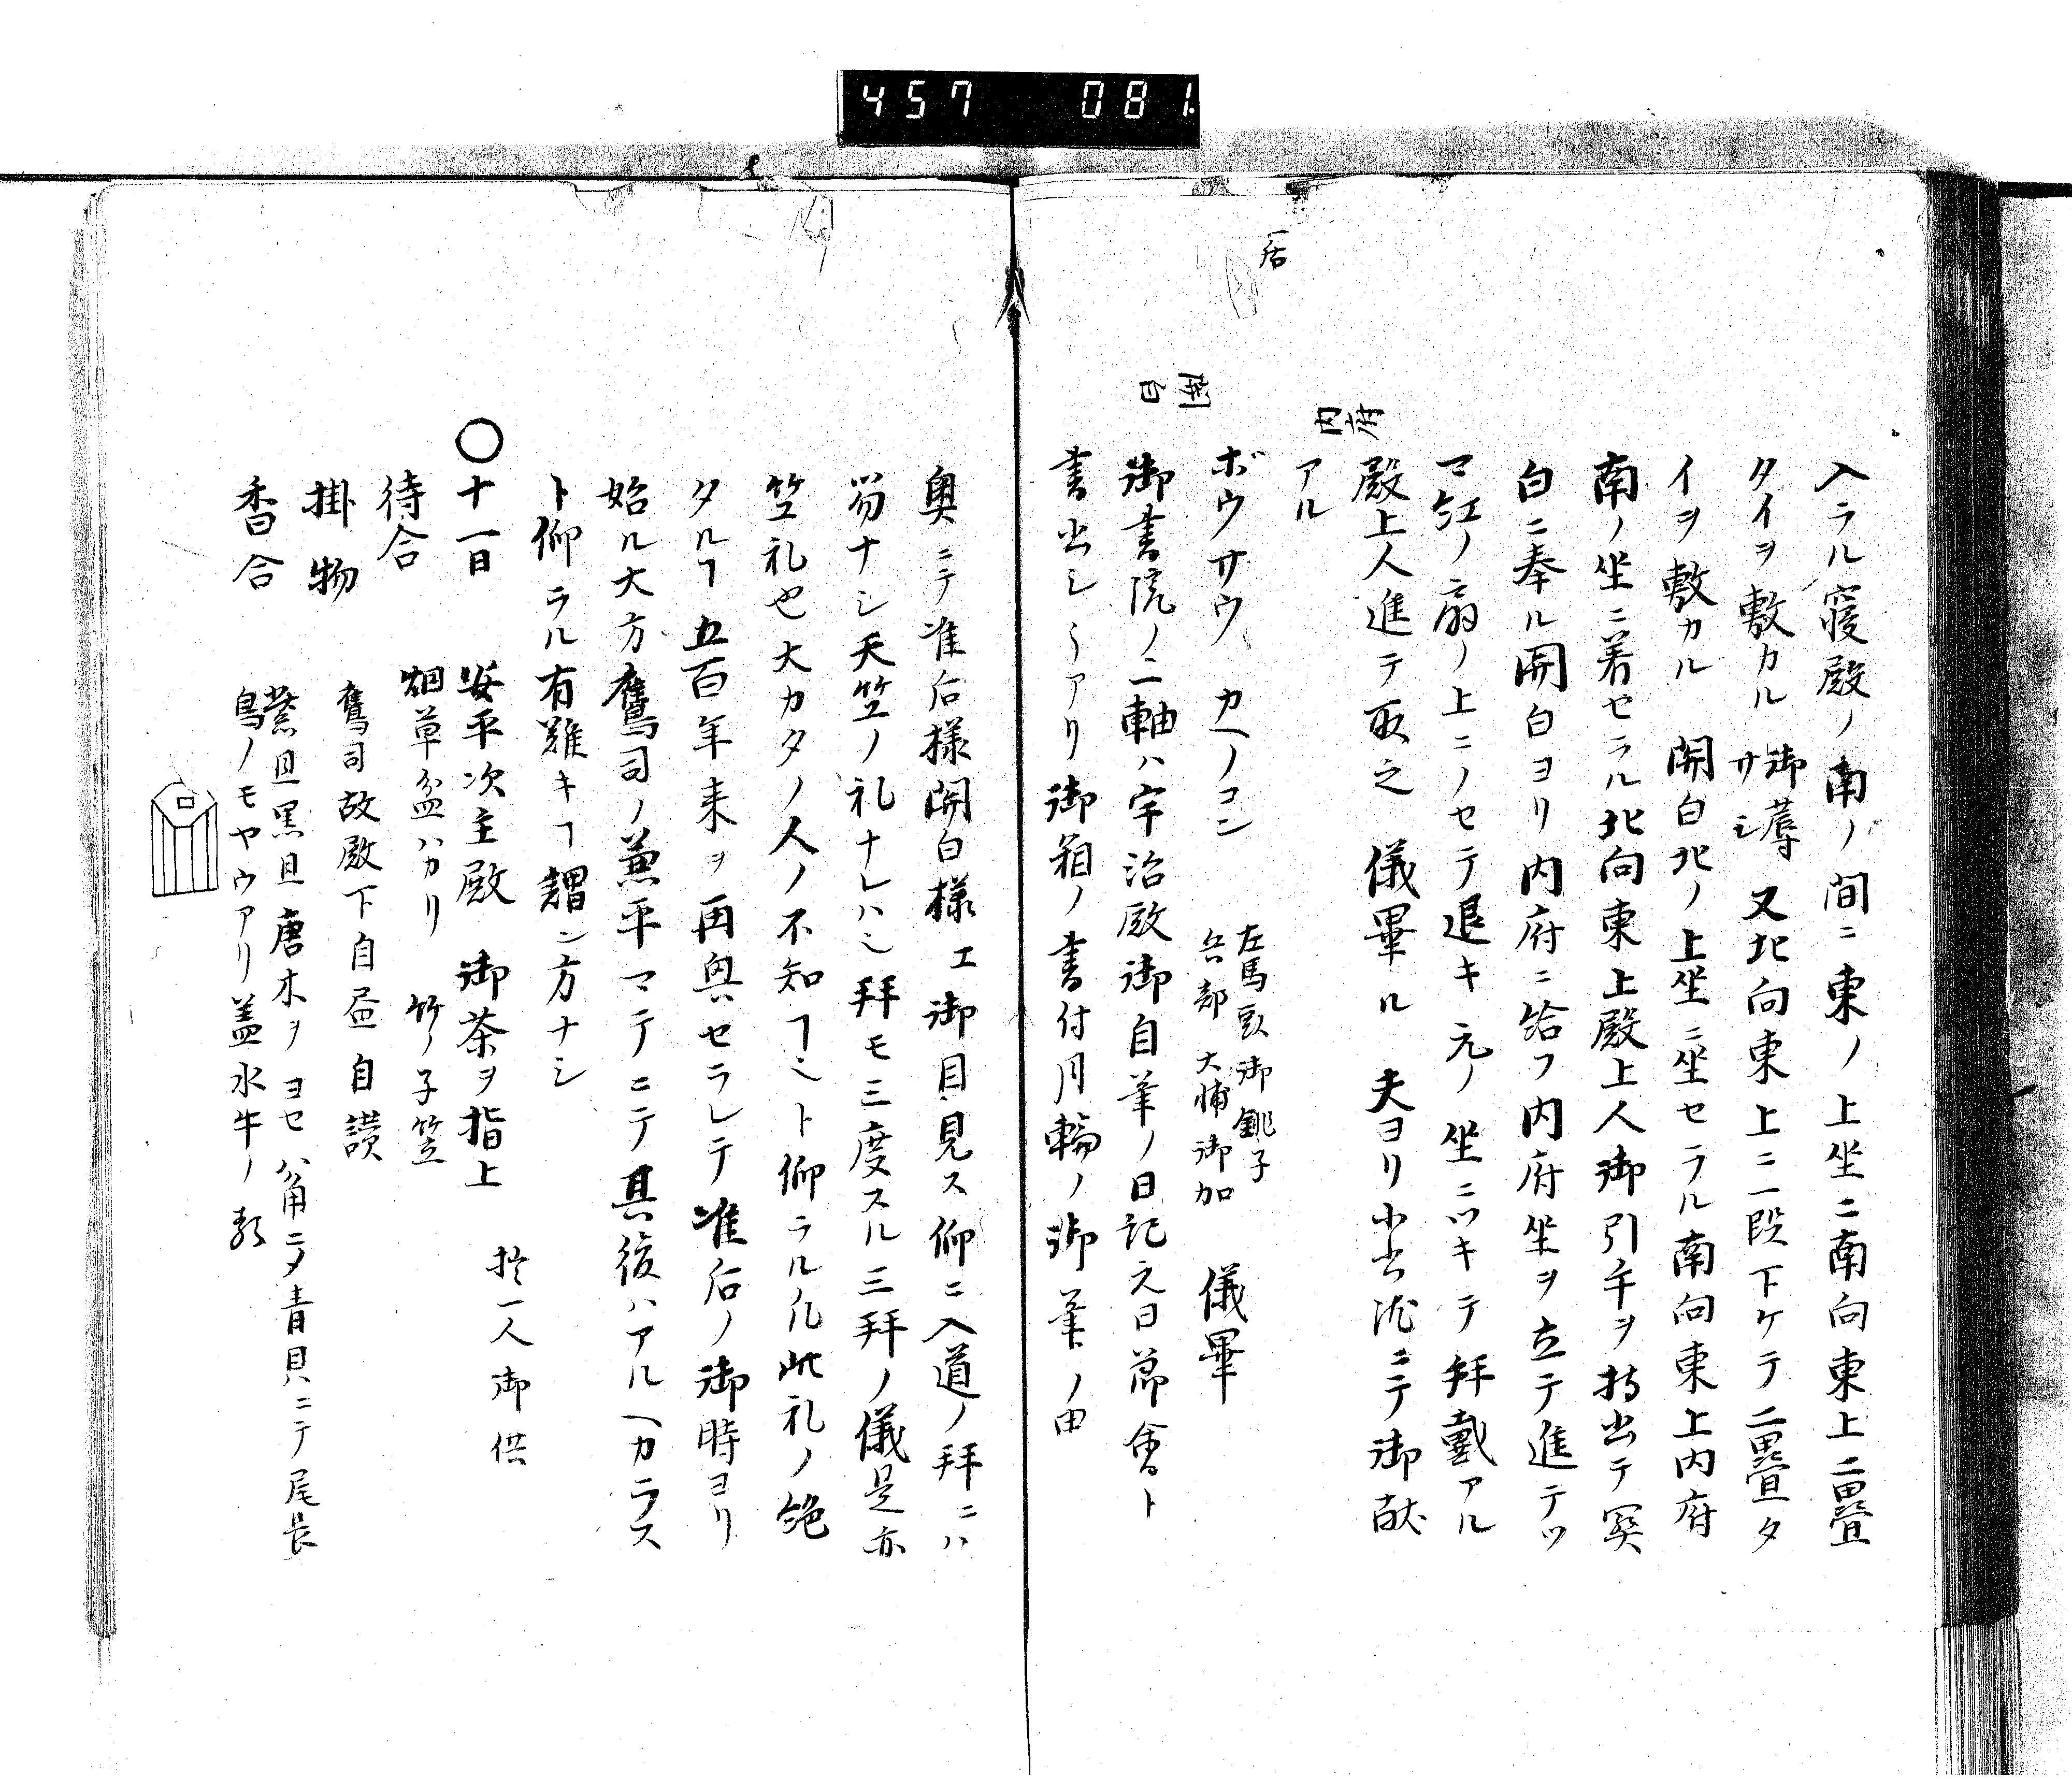 457 081.
入ラル寝殿ノ南ノ間ニ東ノ上坐ニ南向東上ニ二畳
タイヲ敷カル 御蓐サシ 又北向東上ニ一段下ケテ二畳タ
イヲ敷カル 関白北ノ上坐ニ坐セラル南向東上内府
南ノ坐ニ着セラル北向東上殿上人御引手ヲ持出テ関
白ニ奉ル関白ヨリ内府ニ給フ内府坐ヲ立テ進テツ
マ紅ノ扇ノ上ニノセテ退キ元ノ坐ニツキテ拝戴アル
殿上人進テ取之 儀畢ル 夫ヨリ小書院ニテ御献
アル
内府
一居
ボウサウ カヘノコシ
左馬頭御銚子
兵部大輔御加
儀畢
関白
御書院ノ二軸ハ宇治殿御自筆ノ日記元日節會ト
書出シアリ御箱ノ書付月輪ノ御筆ノ由
奥ニテ准后様関白様エ御目見ス仰ニ入道ノ拝ニハ
笏ナシ天竺ノ礼ナレハ拝モ三度スル三拝ノ儀是亦
竺礼也大カタノ人ノ不知ヿト仰ラル凡此礼ノ絶
タルヿ五百年来ヲ再興セラレテ准后ノ御時ヨリ
始ル大方鷹司ノ兼平マテニテ其後ハアルヘカラス
ト仰ラル有難キヿ謂ン方ナシ
〇十一日 安平次主殿 御茶ヲ指上 拙一人御供
待合 烟草盆ハカリ 竹ノ子笠
掛物 鷹司故殿下自画自讃
香合 紫旦黒旦唐木ヲヨセ八角ニメ青貝ニテ尾長
鳥ノモヤウアリ蓋水牛ノ